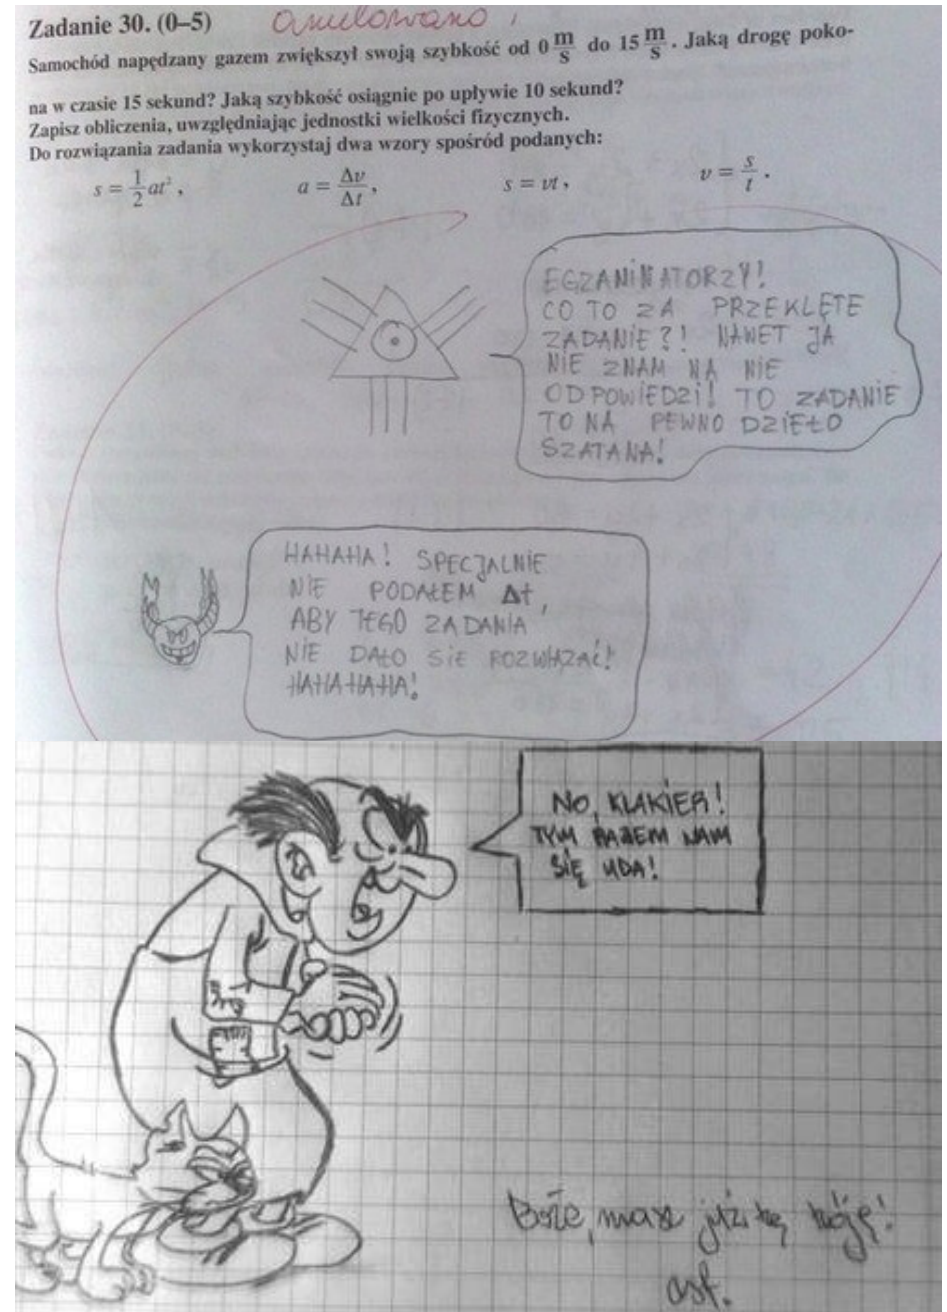 Zadanie 30. (0–5) anulowano!
Samochód napędzany gazem zwiększył swoją szybkość od 0 m/s do 15 m/s. Jaką drogę poko-
na w czasie 15 sekund? Jaką szybkość osiągnie po upływie 10 sekund?
Zapisz obliczenia, uwzględniając jednostki wielkości fizycznych.
Do rozwiązania zadania wykorzystaj dwa wzory spośród podanych:
s = 1/2 at², a = Δv/Δt, s = vt, v = s/t.
EGZAMINATORZY!
CO TO ZA PRZEKLĘTE
ZADANIE?! NAWET JA
NIE ZNAM NA NIE
ODPOWIEDZI! TO ZADANIE
TO NA PEWNO DZIEŁO
SZATANA!
HAHAHA! SPECJALNIE
NIE PODAŁEM Δt,
ABY TEGO ZADANIA
NIE DAŁO SIĘ ROZWIĄZAĆ!
HAHAHAHA!
NO, KLAKIER!
TYM RAZEM NAM
SIĘ UDA!
Boże, masz już tę tróję!